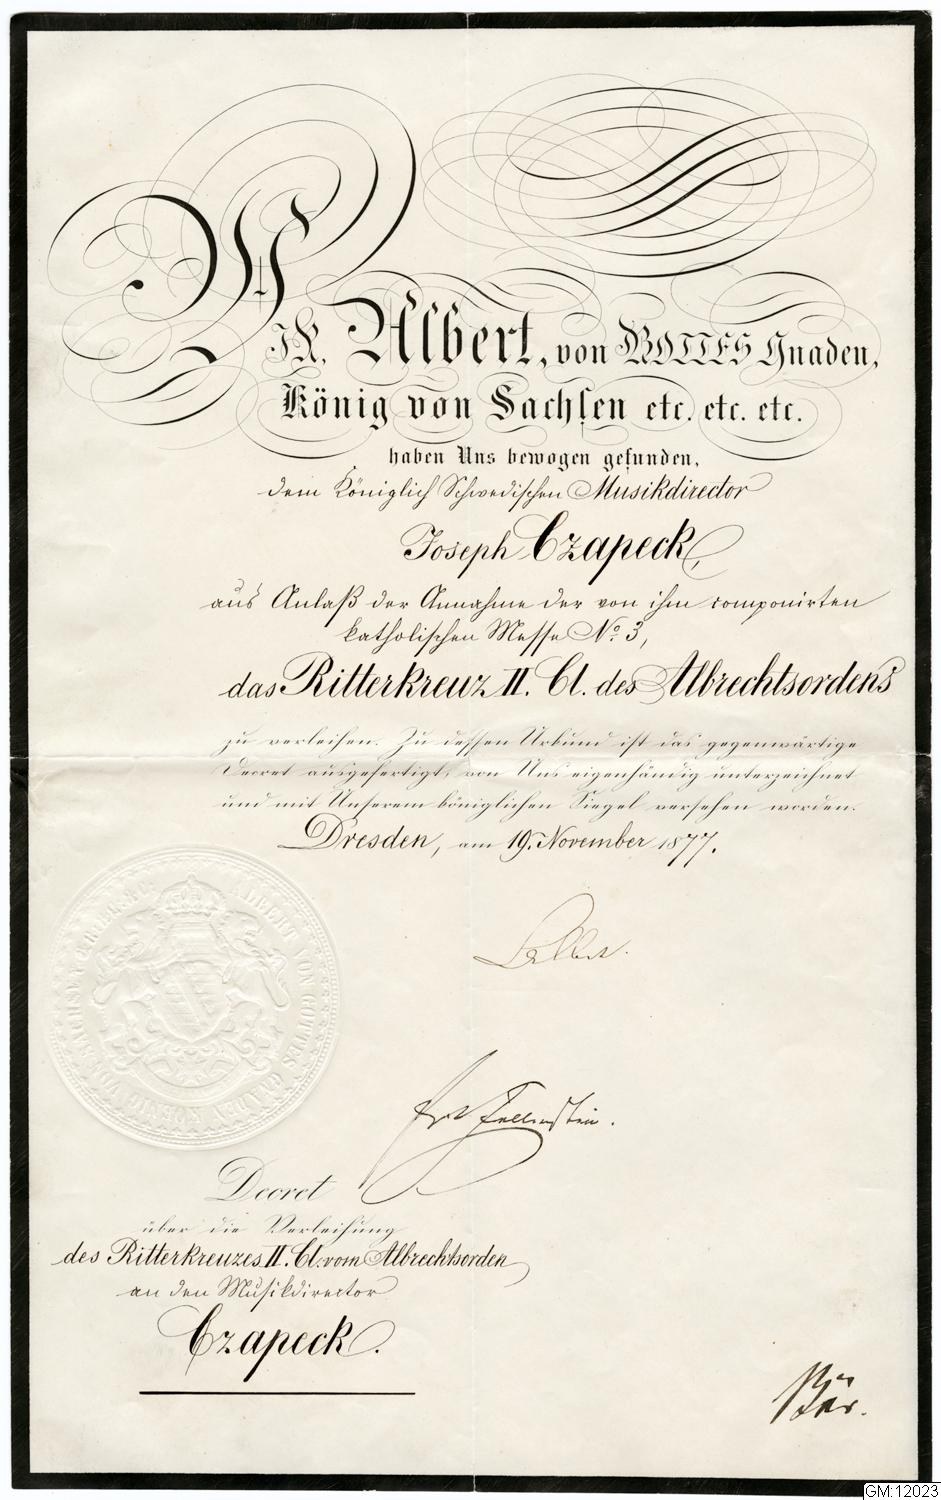 WIR, Albert, von GOTTES Gnaden,
König von Sachsen etc. etc. etc.
haben Uns bewogen gefunden,
dem Königlich Schwedischen Musikdirector
Joseph Czapeck,
aus Anlaß der Annahme der von ihm componirten
katholischen Messe No. 3,
das Ritterkreuz II. Cl. des Albrechtsordens
zu verleihen. Zu dessen Urkund ist das gegenwärtige
Decret ausgefertigt, von Uns eigenhändig unterzeichnet
und mit Unserem königlichen Siegel versehen worden.
Dresden, am 19. November 1877.
ALBERT VON GOTTES GNADEN KOENIG VON SACHSEN
Albert.
Decret
über die Verleihung
des Ritterkreuzes II. Cl. vom Albrechtsorden
an den Musikdirector
Czapeck.
Bär.
GM:12023